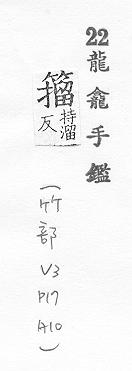 22龍龕手鑑
籀
持溜
反
(竹部V3P17A10)